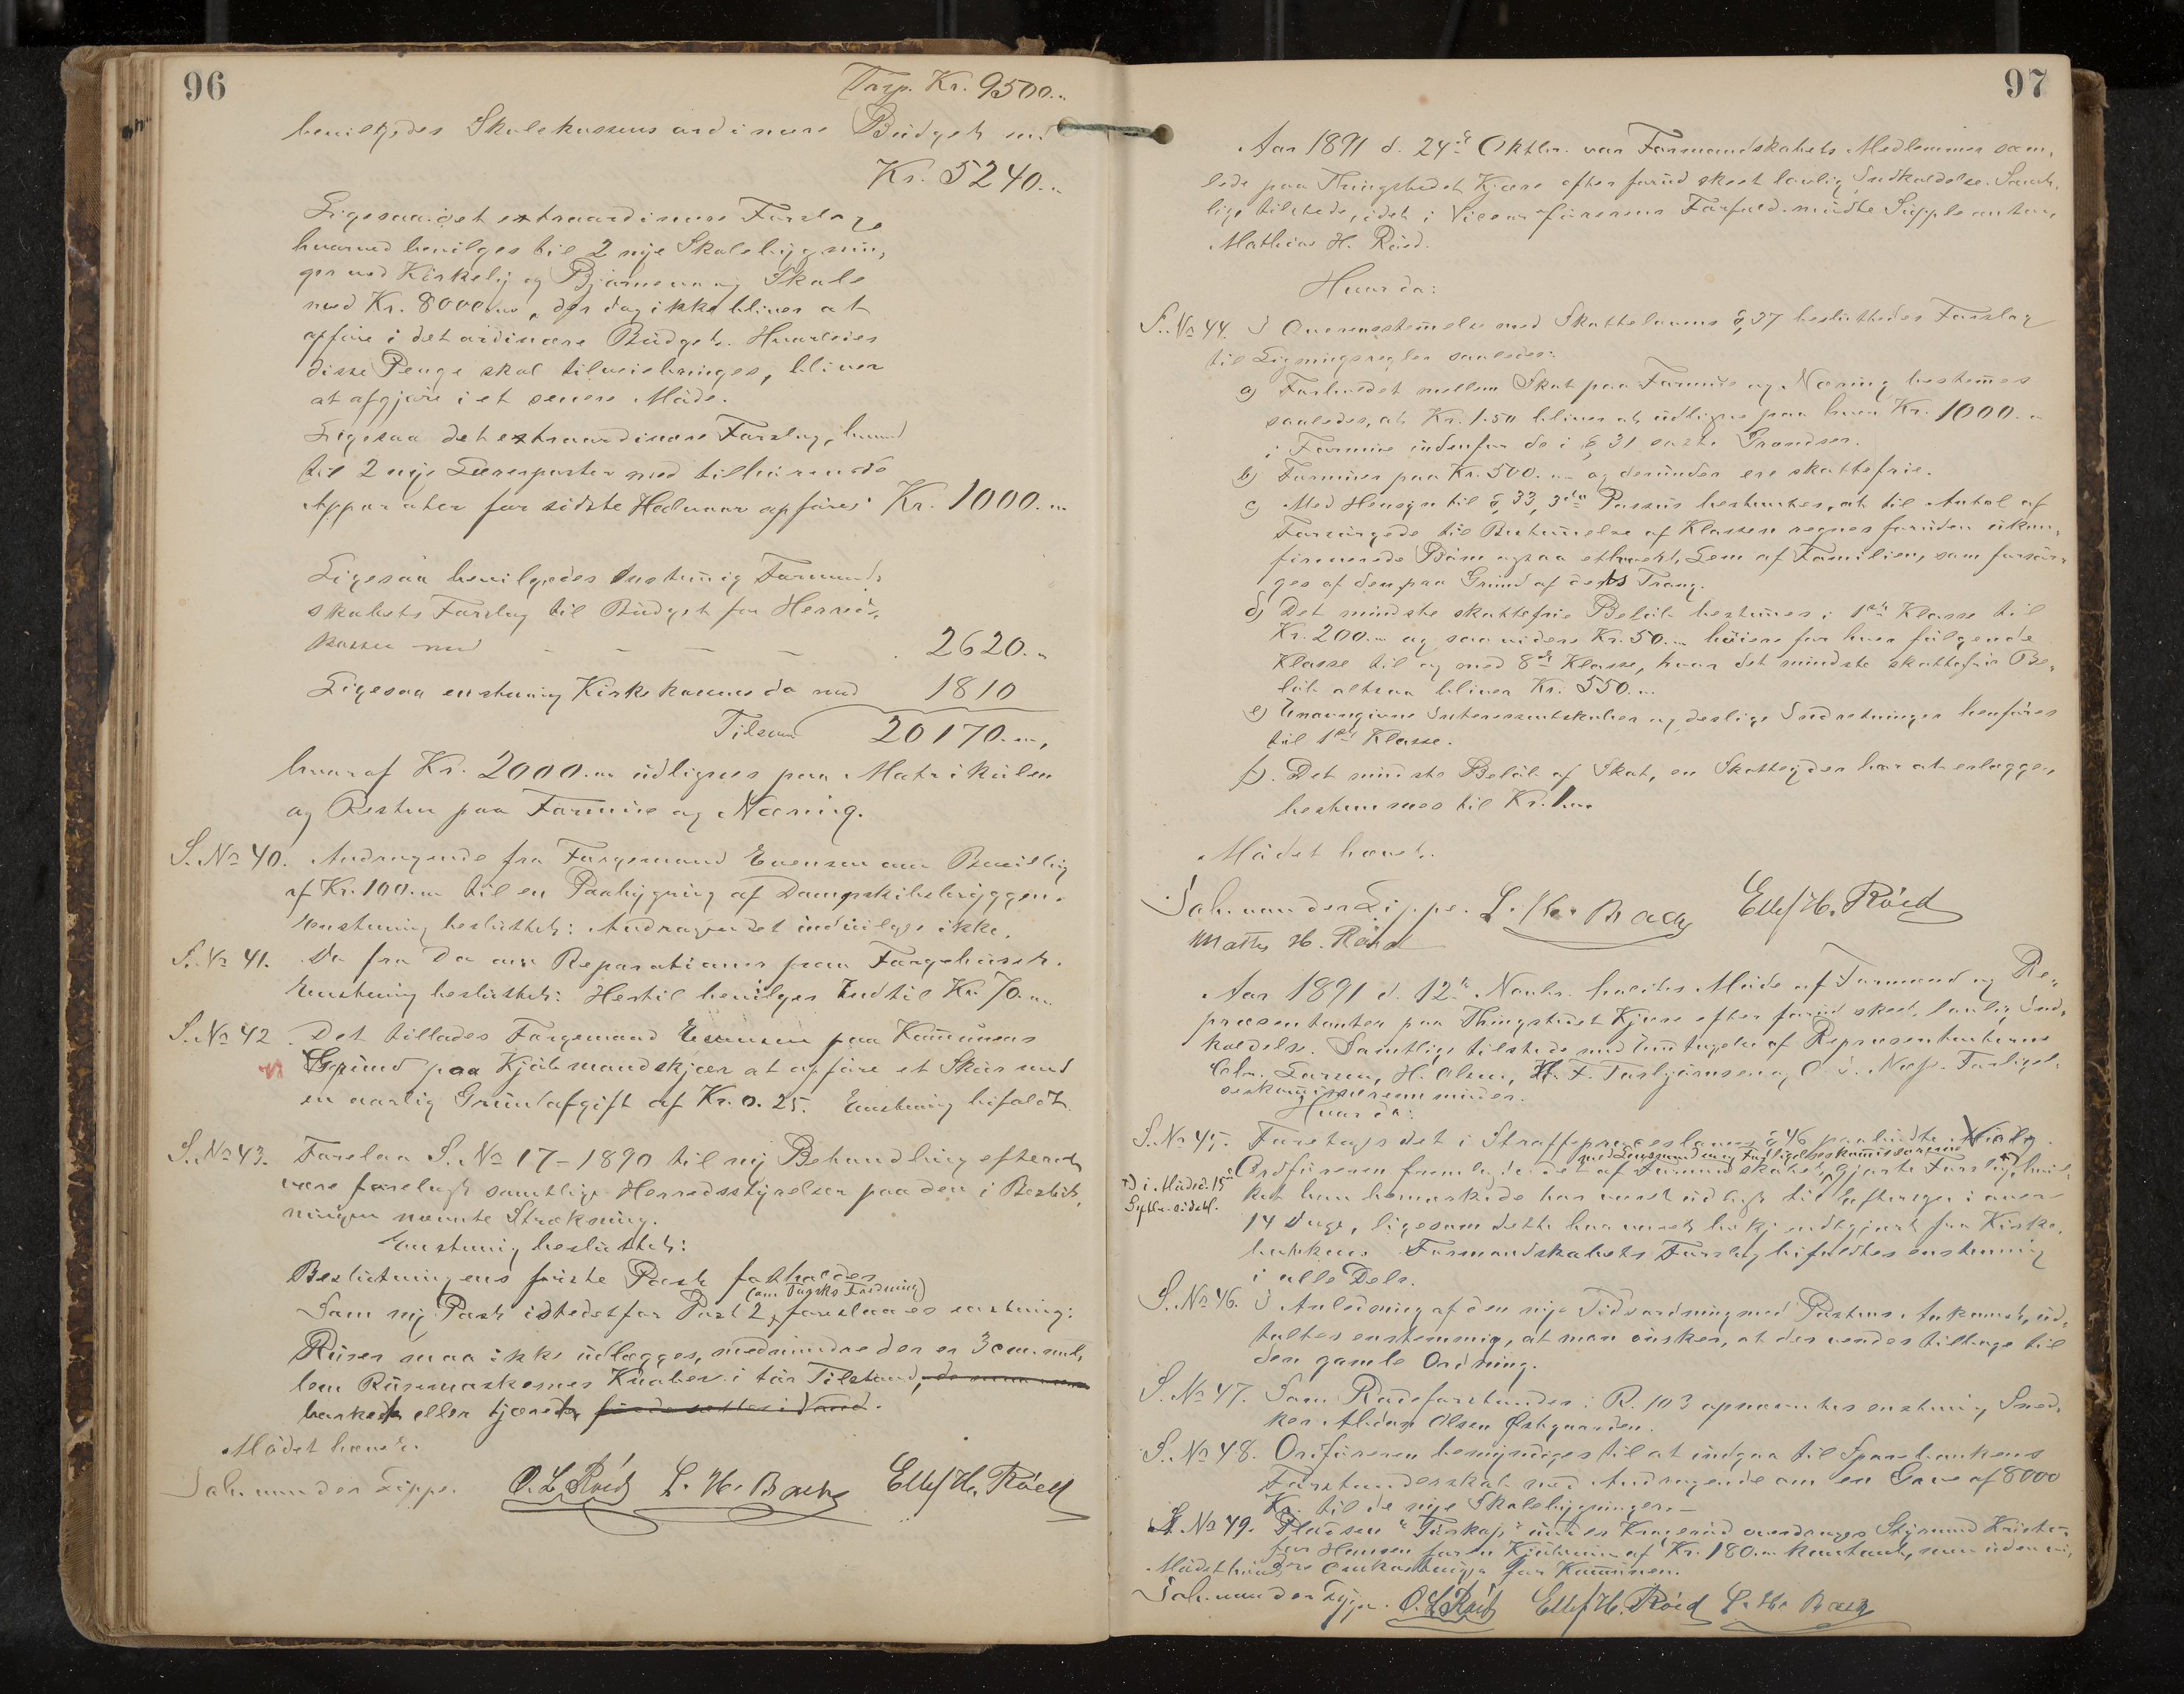 96
Trsp. Kr. 9500.„
bevilgedes Skolekassens ordinære Büdget med
Kr. 5240.„
Ligesaa det extraordinære Forslag,
hvorved bevilges til 2 nye Skolebygnin„
ger ved Kirkelig og Bjørnevaag Skole
med Kr. 8000.„, der dog ikke bliver at
opføre i det ordinære Büdget. Hvorledes
disse Penge skal tilveiebringes, bliver
at afgjøre i et senere Møde.
Ligesaa det extraordinære Forslag, hvorved
til 2 nye Lærerposter med tilhørende
Apparater for sidste Halvaar opføres Kr. 1000.„
Ligesaa bevilgedes enstemig Formand„
skabets Forslag til Büdget for Herreds„
kassen med – – – – 2620.„
Ligesaa enstemig Kirkekassens do med 1810
Tilsam 20170.„,
hvoraf Kr. 2000.„ üdlignes paa Matrikülen
og Resten paa Formüe og Næring.
S. No 40. Andragende fra Færgemand Evensen om Bevilling
af Kr. 100.„ til en Paabygning af Dampskibsbryggen.
Enstemig beslüttet: Andragendet indvilges ikke.
S. No 41. Do fra Do om Reparationer paa Færgehüset.
Enstemig beslüttet: Hertil bevilges indtil Kr. 70.„
S. No 42. Det tillades Færgemand Evensen paa Kommünens
Gründ paa Kjøbmandskjær at opføre et Skür med
en aarlig Gründafgift af Kr. 0.25. Enstemig bifaldt.
S. No 43. Forelaa S. No 17–1890 til ny Behandling efter at
være forelagt samtlige Herredsstyrelser paa den i Beslüt„
ningen nævnte Strækning.
Enstemig beslüttet:
Beslütningens første Post fastholdes
(om Torske Fredning)
Som ny Post istedetfor Post 2, foreslaaes enstemig:
Rüser maa ikke üdlægges, medmindre der er 3 cm. mel„
lem Rüsemaskernes Knüder i tør Tilstand,
barkede eller tjærede
Mødet hævet.
Joh. van der Lippe. O. L. Röed L. H. Bache Ellef H. Röed
97
Aar 1891 d. 24de Oktbr. var Formandskabets Medlemmer sam„
lede paa Thingstedet Kjære efter forüd skeet lovlig Indkaldelse. Samt„
lige tilstede, idet i Viceordførerens Forfald mødte Süppleanten,
Mathias H. Röed.
Hvor da:
S. No 44. I Overensstemmelse med Skattelovens § 37 beslüttedes Forslag
til Ligningsregler saaledes:
a) Forholdet mellem Skat paa Formüe og Næring bestemes
saaledes, at Kr. 1.50 bliver at üdligne paa hver Kr. 1000.„
i Formüe indenfor de i § 31 satte Grændser.
b) Formüer paa Kr. 500.„ og deründer ere skattefrie.
c) Med Hensyn til § 33, 3die Passüs bestemtes, at til Antal af
Forsørgede til Bestemmelse af Klassen regnes forüden ükon„
firmerede Børn ogsaa ethvert Lem af Familien, som forsør„
ges af den paa Gründ af dets Trang.
d) Det mindste skattefrie Beløb bestemes i 1ste Klasse til
Kr. 200.„ og saa videre Kr. 50.„ høiere for hver følgende
Klasse til og med 8de Klasse, hvor det mindste skattefrie Be„
løb altsaa bliver Kr. 550.„
e) Unavngivne Interessentskaber og deslige Indretninger henføres
til 1ste Klasse.
f). Det mindste Beløb af Skat, en Skatteyder har at erlægge,
bestemmes til Kr. 1.„
Mødet hævet.
Joh. van der Lippe. L. H. Bache Ellef H. Röed
Maths H. Röed
Aar 1891 d. 12te Novbr. holdtes Møde af Formænd og Re„
præsentanter paa Thingstedet Kjære efter forüd skeet, lovlig Ind„
kaldelse. Samtlige tilstede med Undtagelse af Repræsentanterne
Chr. Larsen, H. Olsen, H. F. Torbjørnsen og O. J. Næs. Forligel„
seskommissærerne
Hvor da:
S. No 45. Foretoges det i Straffeproceslovens § 46 paabüdte Valg.
med Lensmand og Forligelseskommissærerne
Ordføreren fremlagde det af Formandskabet gjorte Forslag, hvil„
+) i Møde d. 15de
Septbr. sidstl.
ket han bemærkede har været üdlagt til Eftersyn i over
14 Dage, ligesom dette har været bekjendtgjort fra Kirke„
bakken. Formandskabets Forslag bifaldtes enstemig
i alle Dele.
S. No 46. I Anledning af den nye Tidsordning med Postens Ankomst, üd„
taltes enstemmig, at man ønsker, at der vendes tilbage til
den gamle Ordning.
S. No 47. Som Rodeforstander i R. 103 opnævntes enstemig Sned„
ker Olsen Østgaarden.
S. No 48. Ordføreren bemyndiges til at indgaa til Sparebankens
Forstanderskab med Andragende om en Gave af 8000
Kr. til de nye Skolebygninger. –
S. No 49. Pladsen "Torskap" ünder Kragerød overdrages Styrmand Kristo„
fer Hansen for en Kjøbesüm af Kr. 180.„ kontant, men üden vi„
dere Omkostninger for Kommünen.
Mødet hævet
Joh. van der Lippe. O. L. Röed Ellef H. Röed L. H. Bache